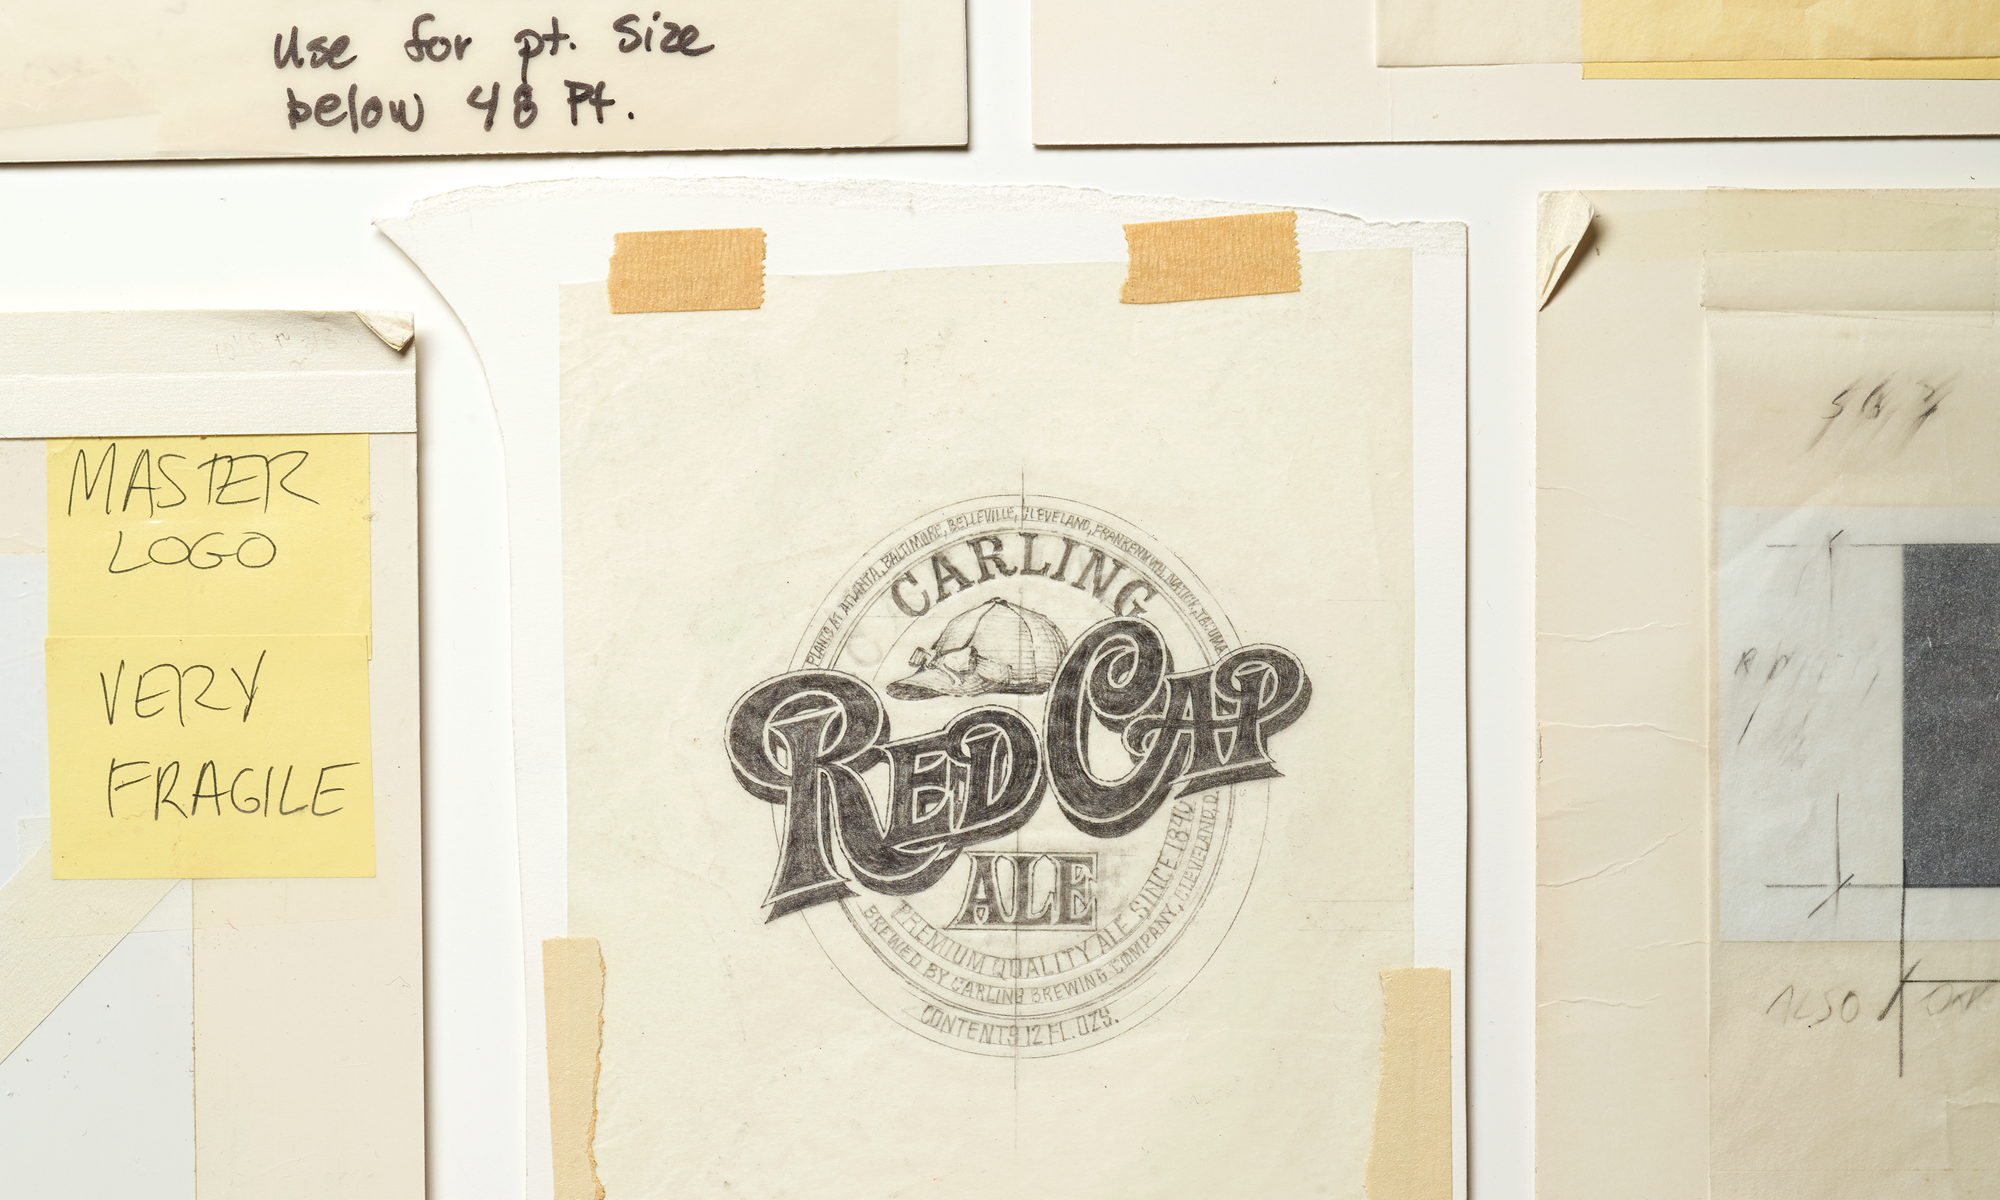 Use for pt. Size
below 48 Pt.
MASTER
LOGO
VERY
FRAGILE
PLANTS AT ATLANTA, BALTIMORE, BELLEVILLE, CLEVELAND, FRANKENMUTH, NATICK, TACOMA
CARLING
RED CAP
ALE
PREMIUM QUALITY ALE SINCE 1840
BREWED BY CARLING BREWING COMPANY, CLEVELAND, O.
CONTENTS 12 FL. OZS.
ALSO